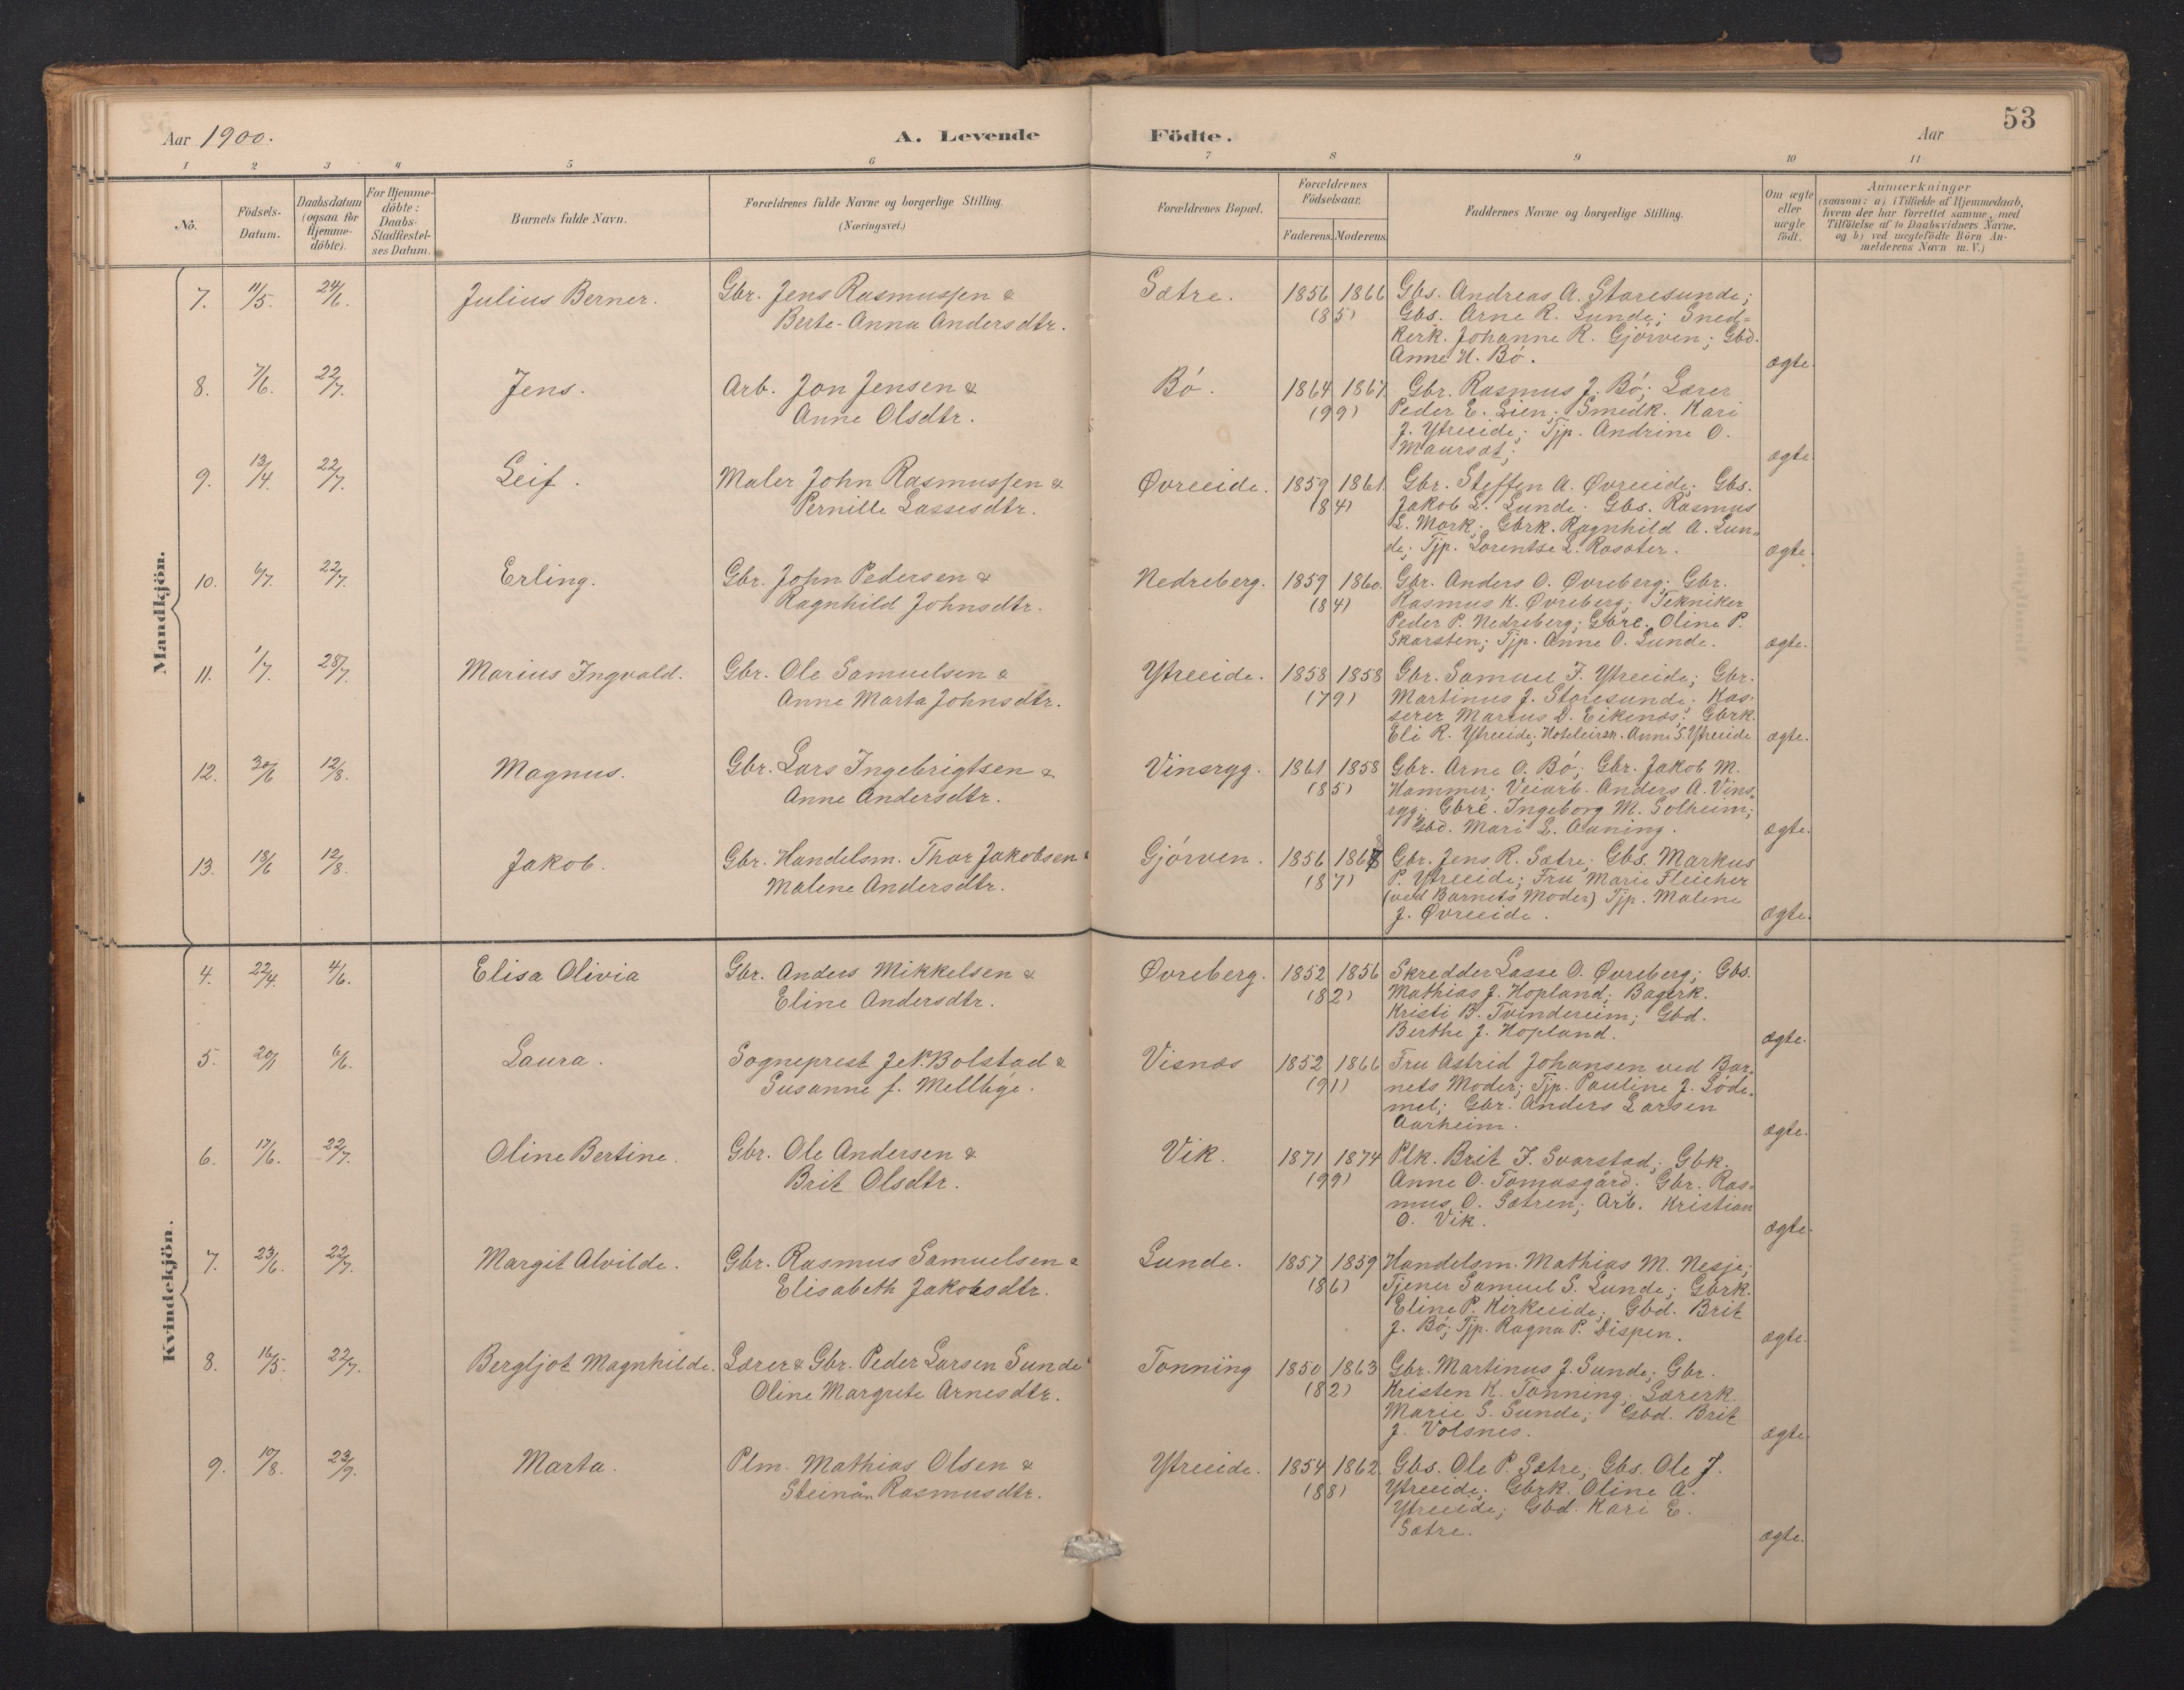 Aar 1900.
A. Levende Födte.
Aar
53
1 2 3 4 5 6 7 8 9 10 11
Nö.
Födsels-
Datum.
Daabsdatum
(ogsaa for
Hjemme-
döbte).
For Hjemme-
döbte:
Daabs-
Stadfæstel-
ses Datum.
Barnets fulde Navn.
Forældrenes fulde Navne og borgerlige Stilling.
(Næringsvei.)
Forældrenes Bopæl.
Forældrenes
Födselsaar.
Faderens. Moderens.
Faddernes Navne og borgerlige Stilling.
Om ægte
eller
uægte
födt.
Anmærkninger
(saasom: a) i Tilfælde af Hjemmedaab,
hvem der har forrettet samme, med
Tilföielse af to Daabsvidners Navne.
og b) ved uægtefödte Börn An-
melderens Navn m. V.)
Mandkjön.
7. 11/5. 24/6. Julius Berner. Gbr. Jens Rasmussen &
Berte-Anna Andersdtr.
Sætre. 1856 1866
(85)
Gbs. Andreas A. Staresunde;
Gbs. Arne R. Sunde; Sned=
kerk. Johanne R. Gjörven; Gbd.
Anne H. Bö.
ægte.
8. 7/6. 22/7. Jens. Arb. Jon Jensen &
Anne Olsdtr.
Bö. 1864 1867.
(99)
Gbr. Rasmus J. Bö; Lærer
Peder E. Lien; Smedk. Kari
J. Ytreeide; Tjp. Andrine O.
Maurset;
ægte.
9. 13/4. 22/7. Leif. Maler John Rasmussen &
Pernille Lassesdtr.
Øvreeide. 1859 1861.
(84)
Gbr. Steffen A. Øvreeide; Gbs.
Jakob L. Sunde; Gbs. Rasmus
L. Mork; Gbrk. Ragnhild A. Sun=
de; Tjp. Lorentse L. Rosæter.
ægte.
10. 6/7. 22/7. Erling. Gbr. John Pedersen &
Ragnhild Johnsdtr.
Nedreberg. 1859 1860.
(84)
Gbr. Anders O. Øvreberg; Gbr.
Rasmus K. Øvreberg; Tekniker
Peder P. Nedreberg; Gbre. Oline P.
Skarsten; Tjp. Anne O. Sunde.
ægte.
11. 1/7. 28/7. Marius Ingvald. Gbr. Ole Samuelsen &
Anne Marta Johnsdtr.
Ytreeide. 1858 1858
(79)
Gbr. Samuel J. Ytreeide; Gbr.
Martinus J. Staresunde; Kas-
serer Marius D. Eikenæs; Gbrk.
Eli R. Ytreeide; Hoteleiersk. Anne S. Ytreeide
ægte.
12. 30/6 12/8. Magnus. Gbr. Lars Ingebrigtsen &
Anne Andersdtr.
Vinsryg. 1861 1858
(85)
Gbr. Arne O. Bö; Gbr. Jakob M.
Hammer; Veiarb. Anders A. Vins=
ryg; Gbre. Ingeborg M. Solheim;
Gbd. Mari L. Auning.
ægte.
13. 18/6 12/8. Jakob. Gbr. Handelsm. Thor Jakobsen &
Malene Andersdtr.
Gjörven. 1856
(87)
Gbr. Jens R. Sætre; Gbs. Markus
P. Ytreeide; Fru Marie Fleicher
(ved Barnets Moder) Tjp. Malene
J. Øvreeide.
ægte.
Kvindekjön.
4. 22/4. 4/6. Elisa Olivia Gbr. Anders Mikkelsen &
Eline Andersdtr.
Øvreberg. 1852 1856
(82)
Skredder Lasse O. Øvreberg; Gbs.
Mathias J. Hopland; Bagerk.
Kristi B. Tvindereim; Gbd.
Berthe J. Hopland.
ægte.
5. 20/1 6/6. Laura. Sogneprest J. N. Bolstad &
Susanne f. Mellbye.
Visnæs 1852 1866
(91)
Fru Astrid Johansen ved Bar=
nets Moder; Tjp. Pauline J. Söde=
mel; Gbr. Anders Larsen
Aarheim.
ægte.
6. 17/6. 22/7. Oline Bertine. Gbr. Ole Andersen &
Brit Olsdtr.
Vik. 1871 1874
(99)
Plk. Brit J. Svarstad; Gbk.
Anne O. Tomasgård; Gbr. Ras=
mus O. Sætren; Arb. Kristian
O. Vik.
ægte.
7. 23/6. 22/7. Margit Alvilde. Gbr. Rasmus Samuelsen &
Elisabeth Jakobsdtr.
Sunde. 1857 1859
(86)
Handelsm. Mathias M. Nesje;
Tjener Samuel S. Sunde; Gbrk.
Eline P. Kirkeeide; Gbd. Brit
J. Bö; Tjp. Ragna P. Dispen.
ægte.
8. 16/5. 22/7. Bergljot Magnhilde. Lærer & Gbr. Peder Larsen Sunde &
Oline Margrete Arnesdtr.
Tonning 1850 1863
(82)
Gbr. Martinus J. Sunde; Gbr.
Kristen K. Tonning; Lærerk.
Marie S. Sunde; Gbd. Brit
J. Volsnes.
ægte.
9. 10/8. 23/9. Marta. Plm. Mathias Olsen &
Steinån Rasmusdtr.
Ytreeide. 1854 1862.
(88)
Gbs. Ole P. Sætre; Gbs. Ole J.
Ytreeide; Gbrk. Oline A.
Ytreeide; Gbd. Kari E.
Sætre.
ægte.